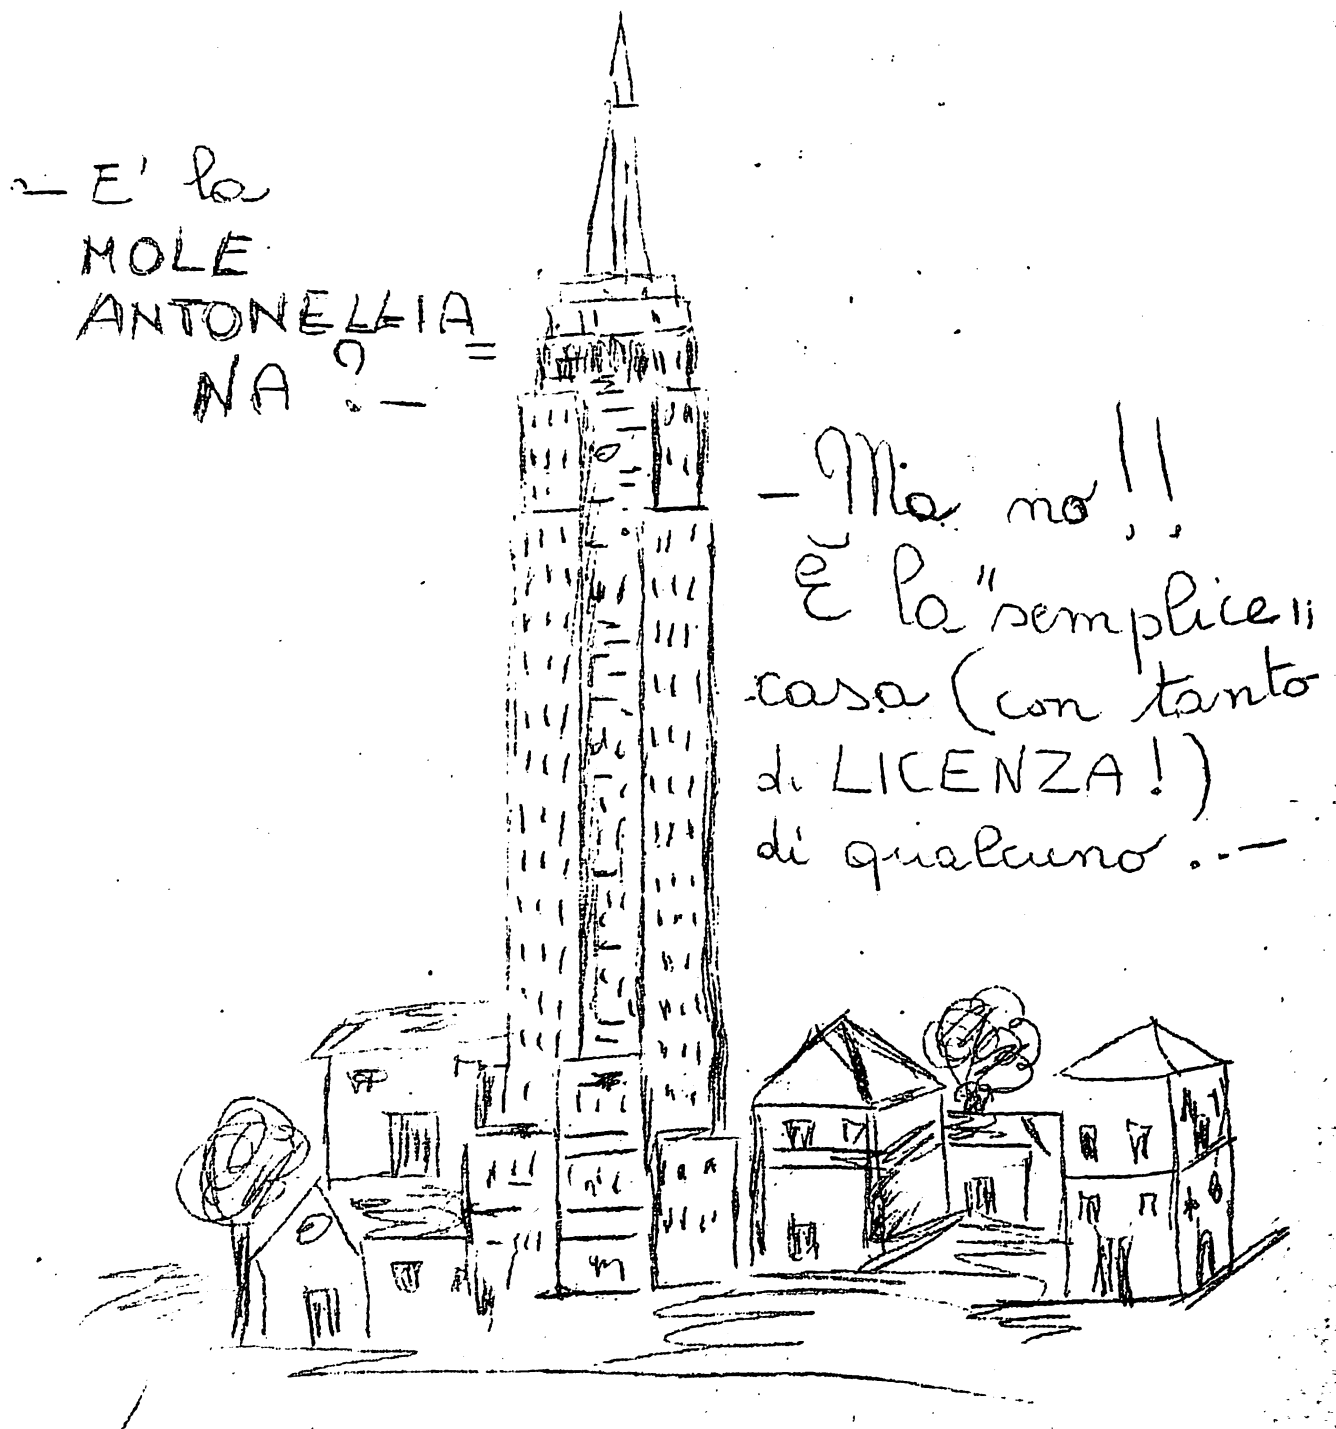 - E' la
MOLE
ANTONELLIA=
NA ? -
- Ma no!!
È la "semplice"
casa (con tanto
di LICENZA!)
di qualcuno..-